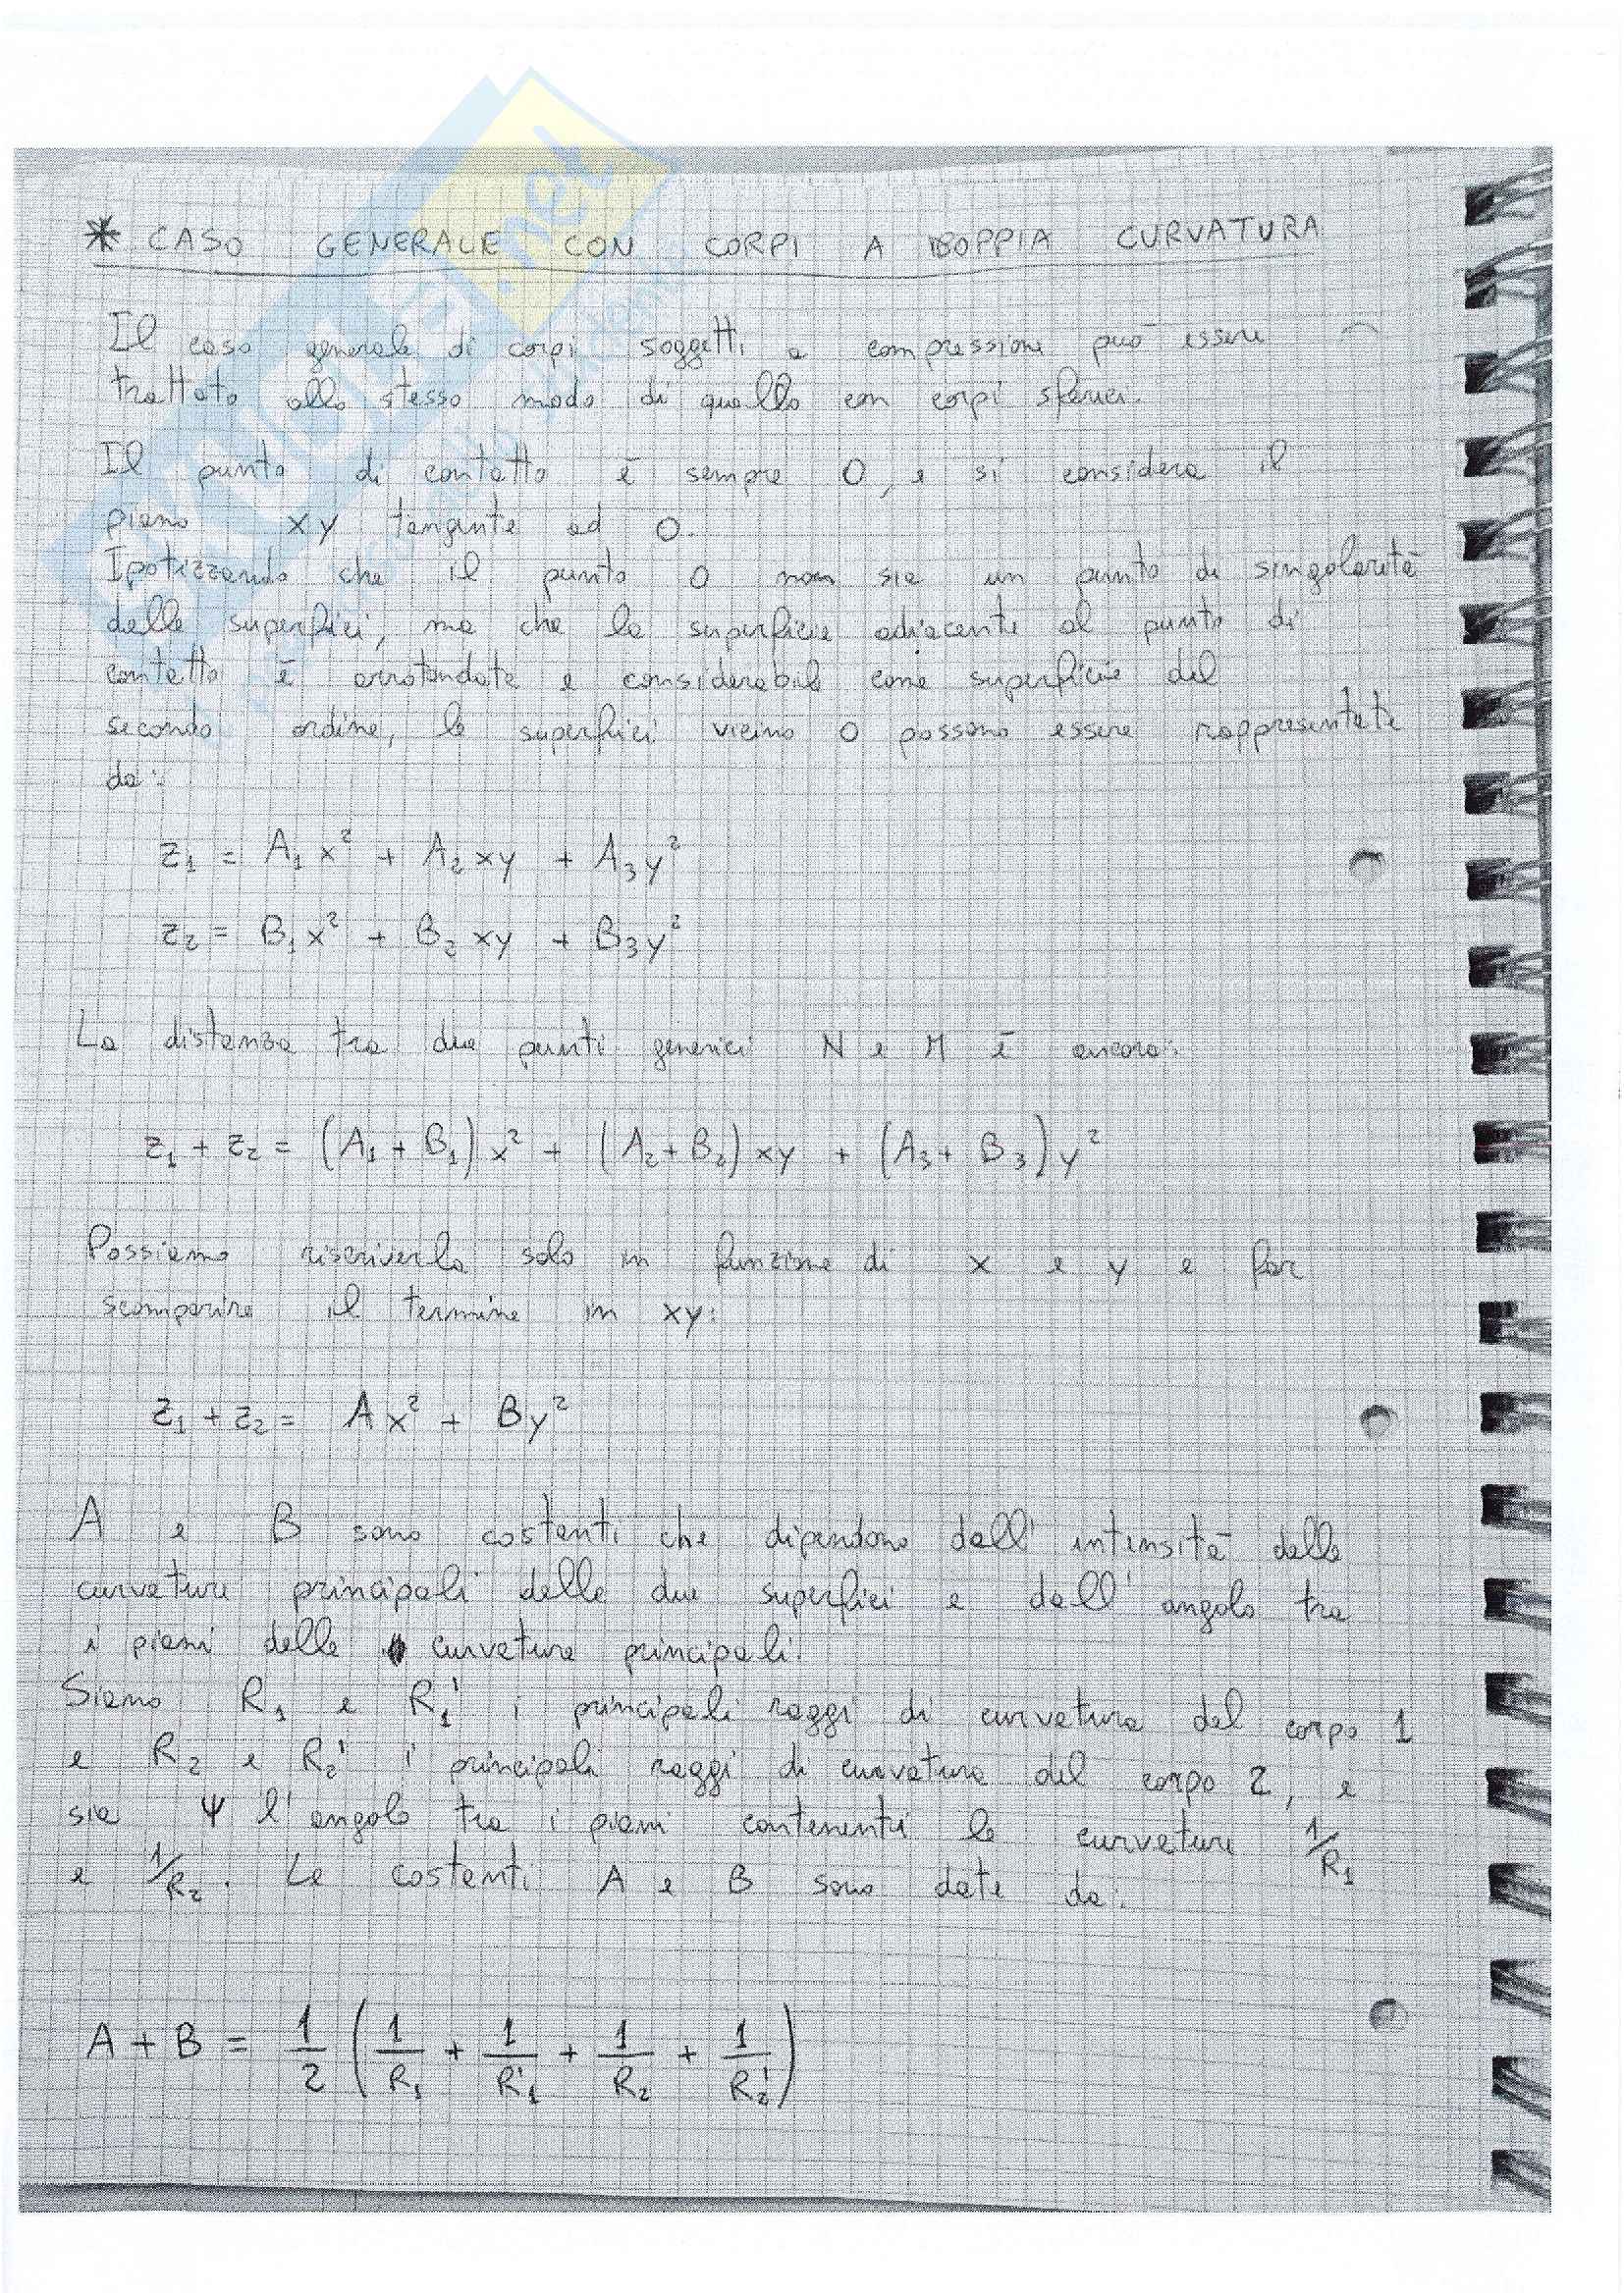 * CASO GENERALE CON CORPI A DOPPIA CURVATURA
Il caso generale di corpi soggetti a compressione può essere
trattato allo stesso modo di quello con corpi sferici.
Il punto di contatto è sempre O, e si considera il
piano xy tangente ad O.
Ipotizzando che il punto O non sia un punto di singolarità
delle superfici, ma che la superficie adiacente al punto di
contatto è arrotondata e considerabile come superficie del
secondo ordine, le superfici vicino O possono essere rappresentate
da:
z₁ = A₁x² + A₂xy + A₃y²
z₂ = B₁x² + B₂xy + B₃y²
La distanza tra due punti generici N e M è ancora:
z₁ + z₂ = (A₁ + B₁) x² + (A₂ + B₂) xy + (A₃ + B₃) y²
Possiamo riscriverla solo in funzione di x e y e far
scomparire il termine in xy:
z₁ + z₂ = Ax² + By²
A e B sono costanti che dipendono dall'intensità delle
curvature principali delle due superfici e dall'angolo tra
i piani delle curvature principali.
Siano R₁ e R₁' i principali raggi di curvatura del corpo 1
e R₂ e R₂' i principali raggi di curvatura del corpo 2, e
sia ψ l'angolo tra i piani contenenti le curvature 1/R₁
e 1/R₂. Le costanti A e B sono date da:
A + B = 1/2 (1/R₁ + 1/R₁' + 1/R₂ + 1/R₂')
skuola.net